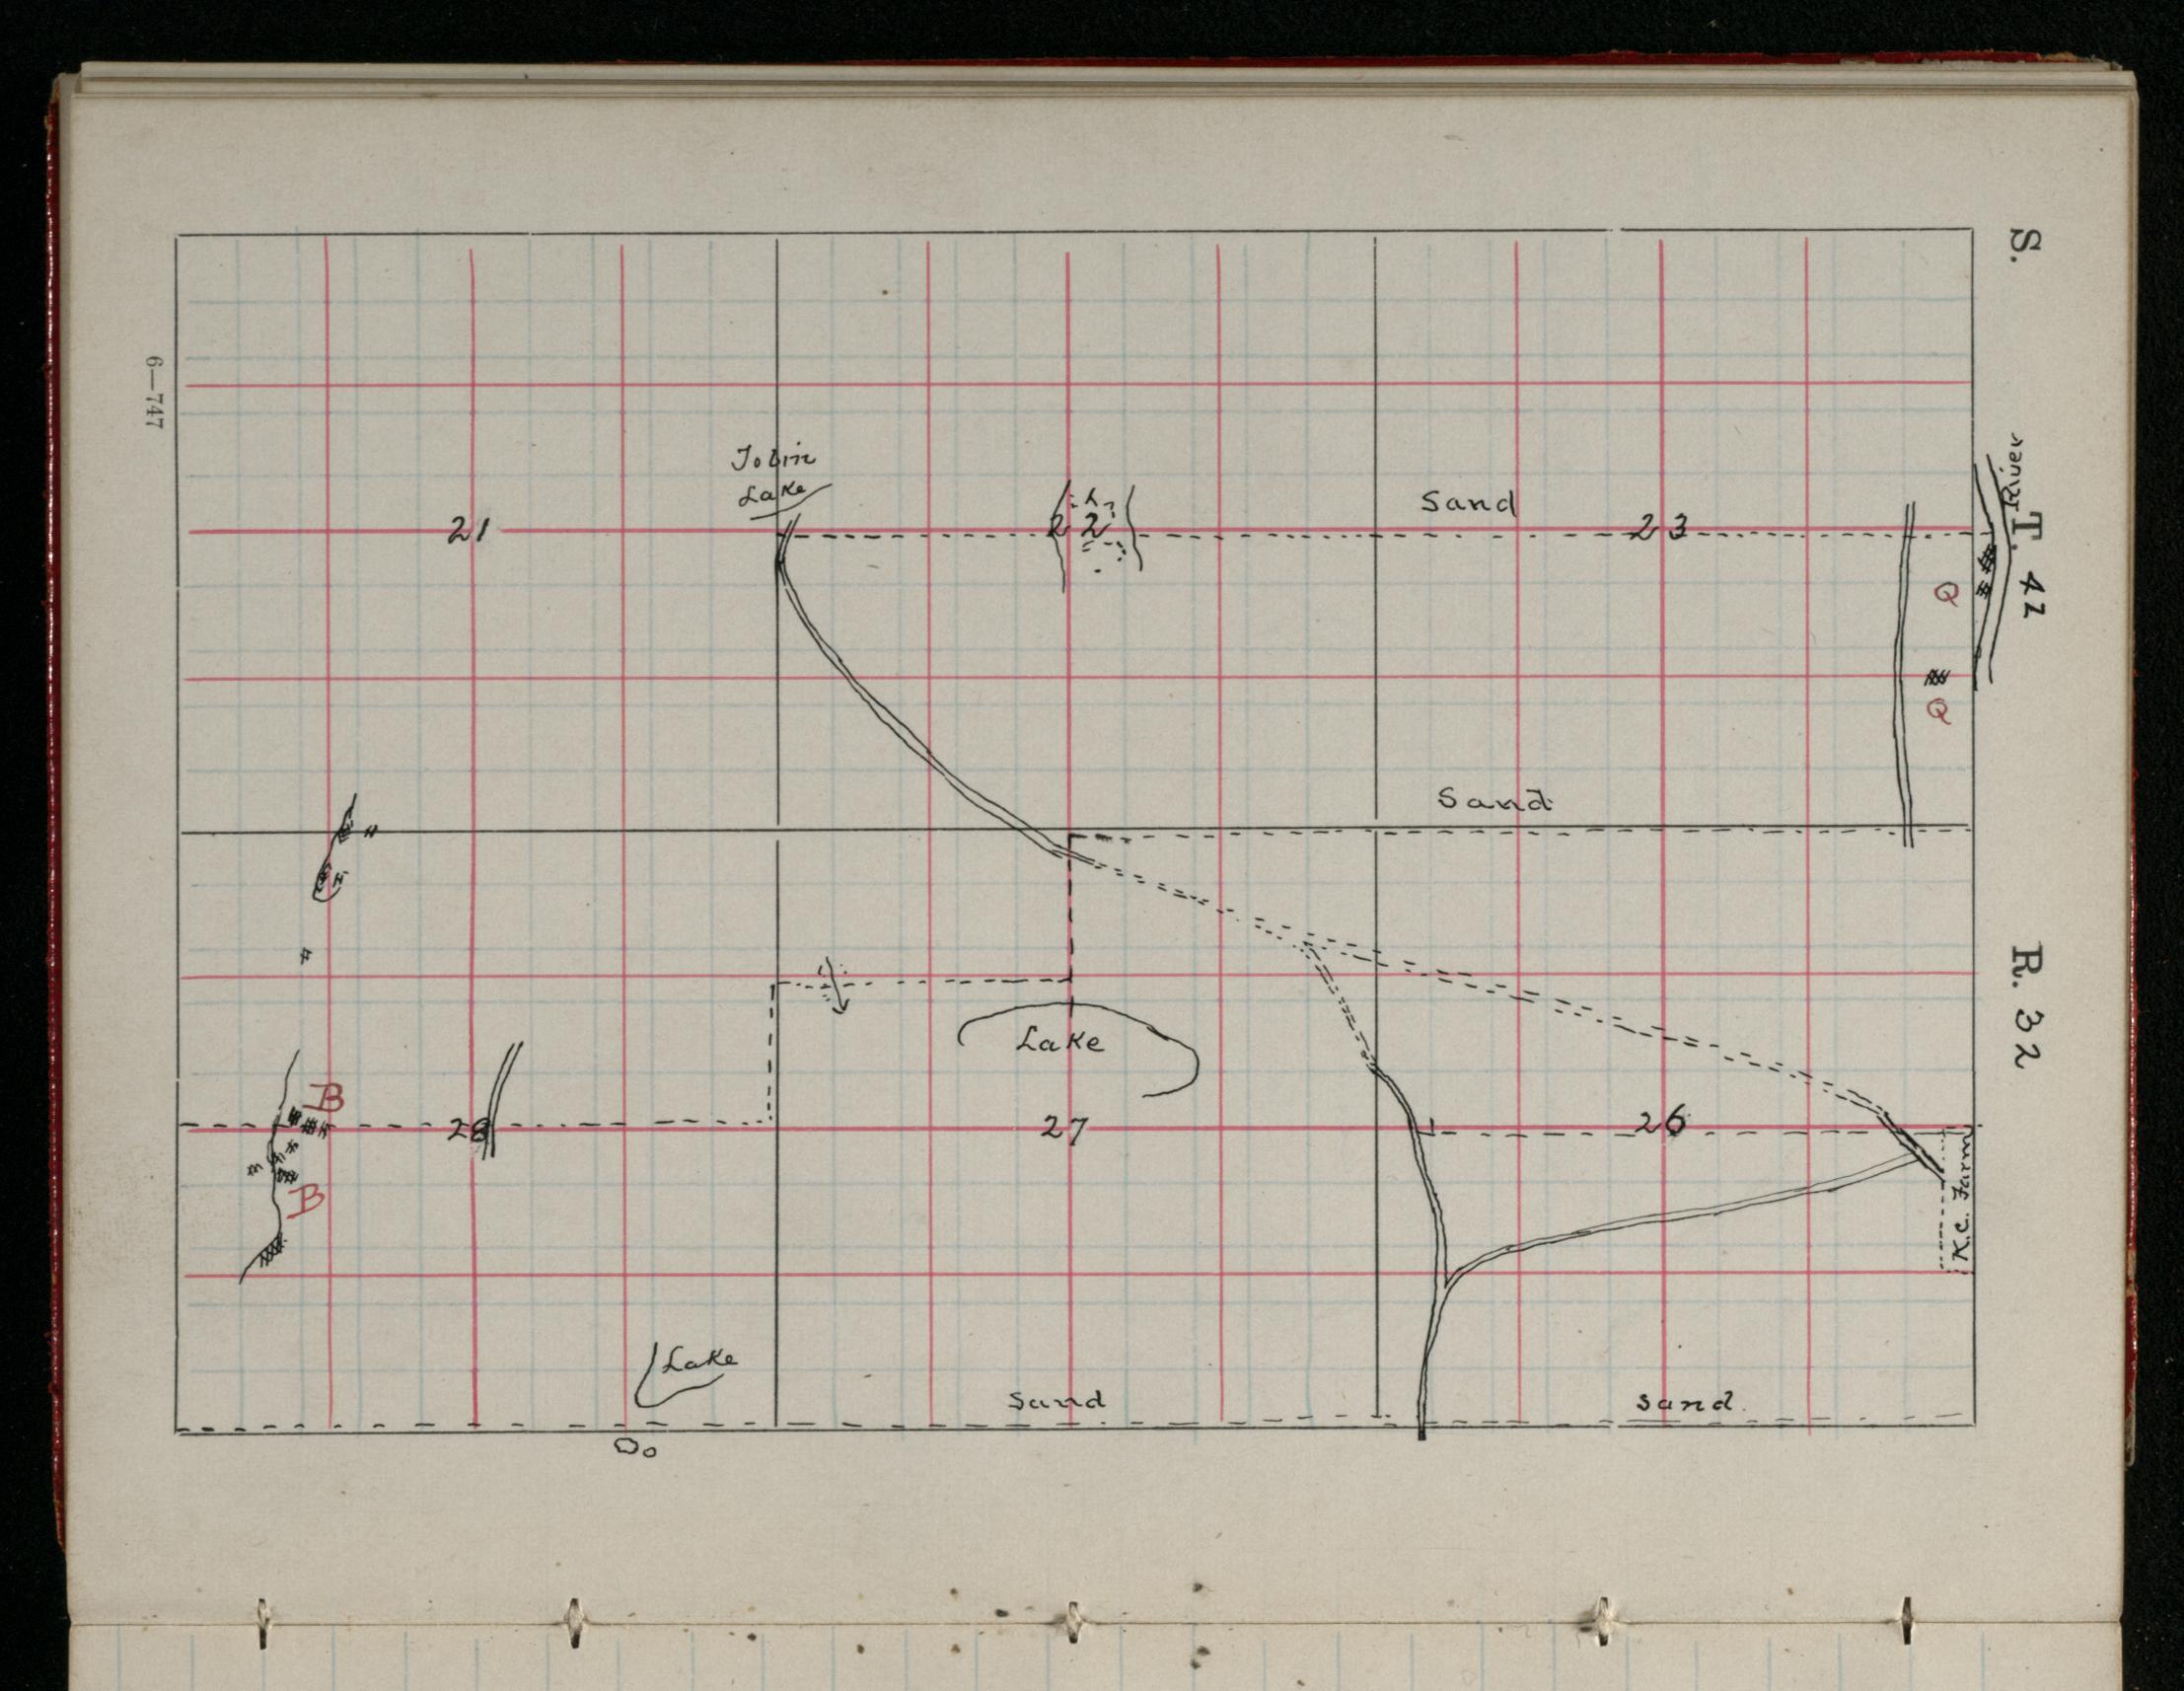 S.
T. 42
R. 32
6—747
River
Tobin
Lake
Sand
21
22
23
Q
Q
Sand
Lake
B
28
27
26
B
K.C. Farm
Lake
Sand
Sand.
Do